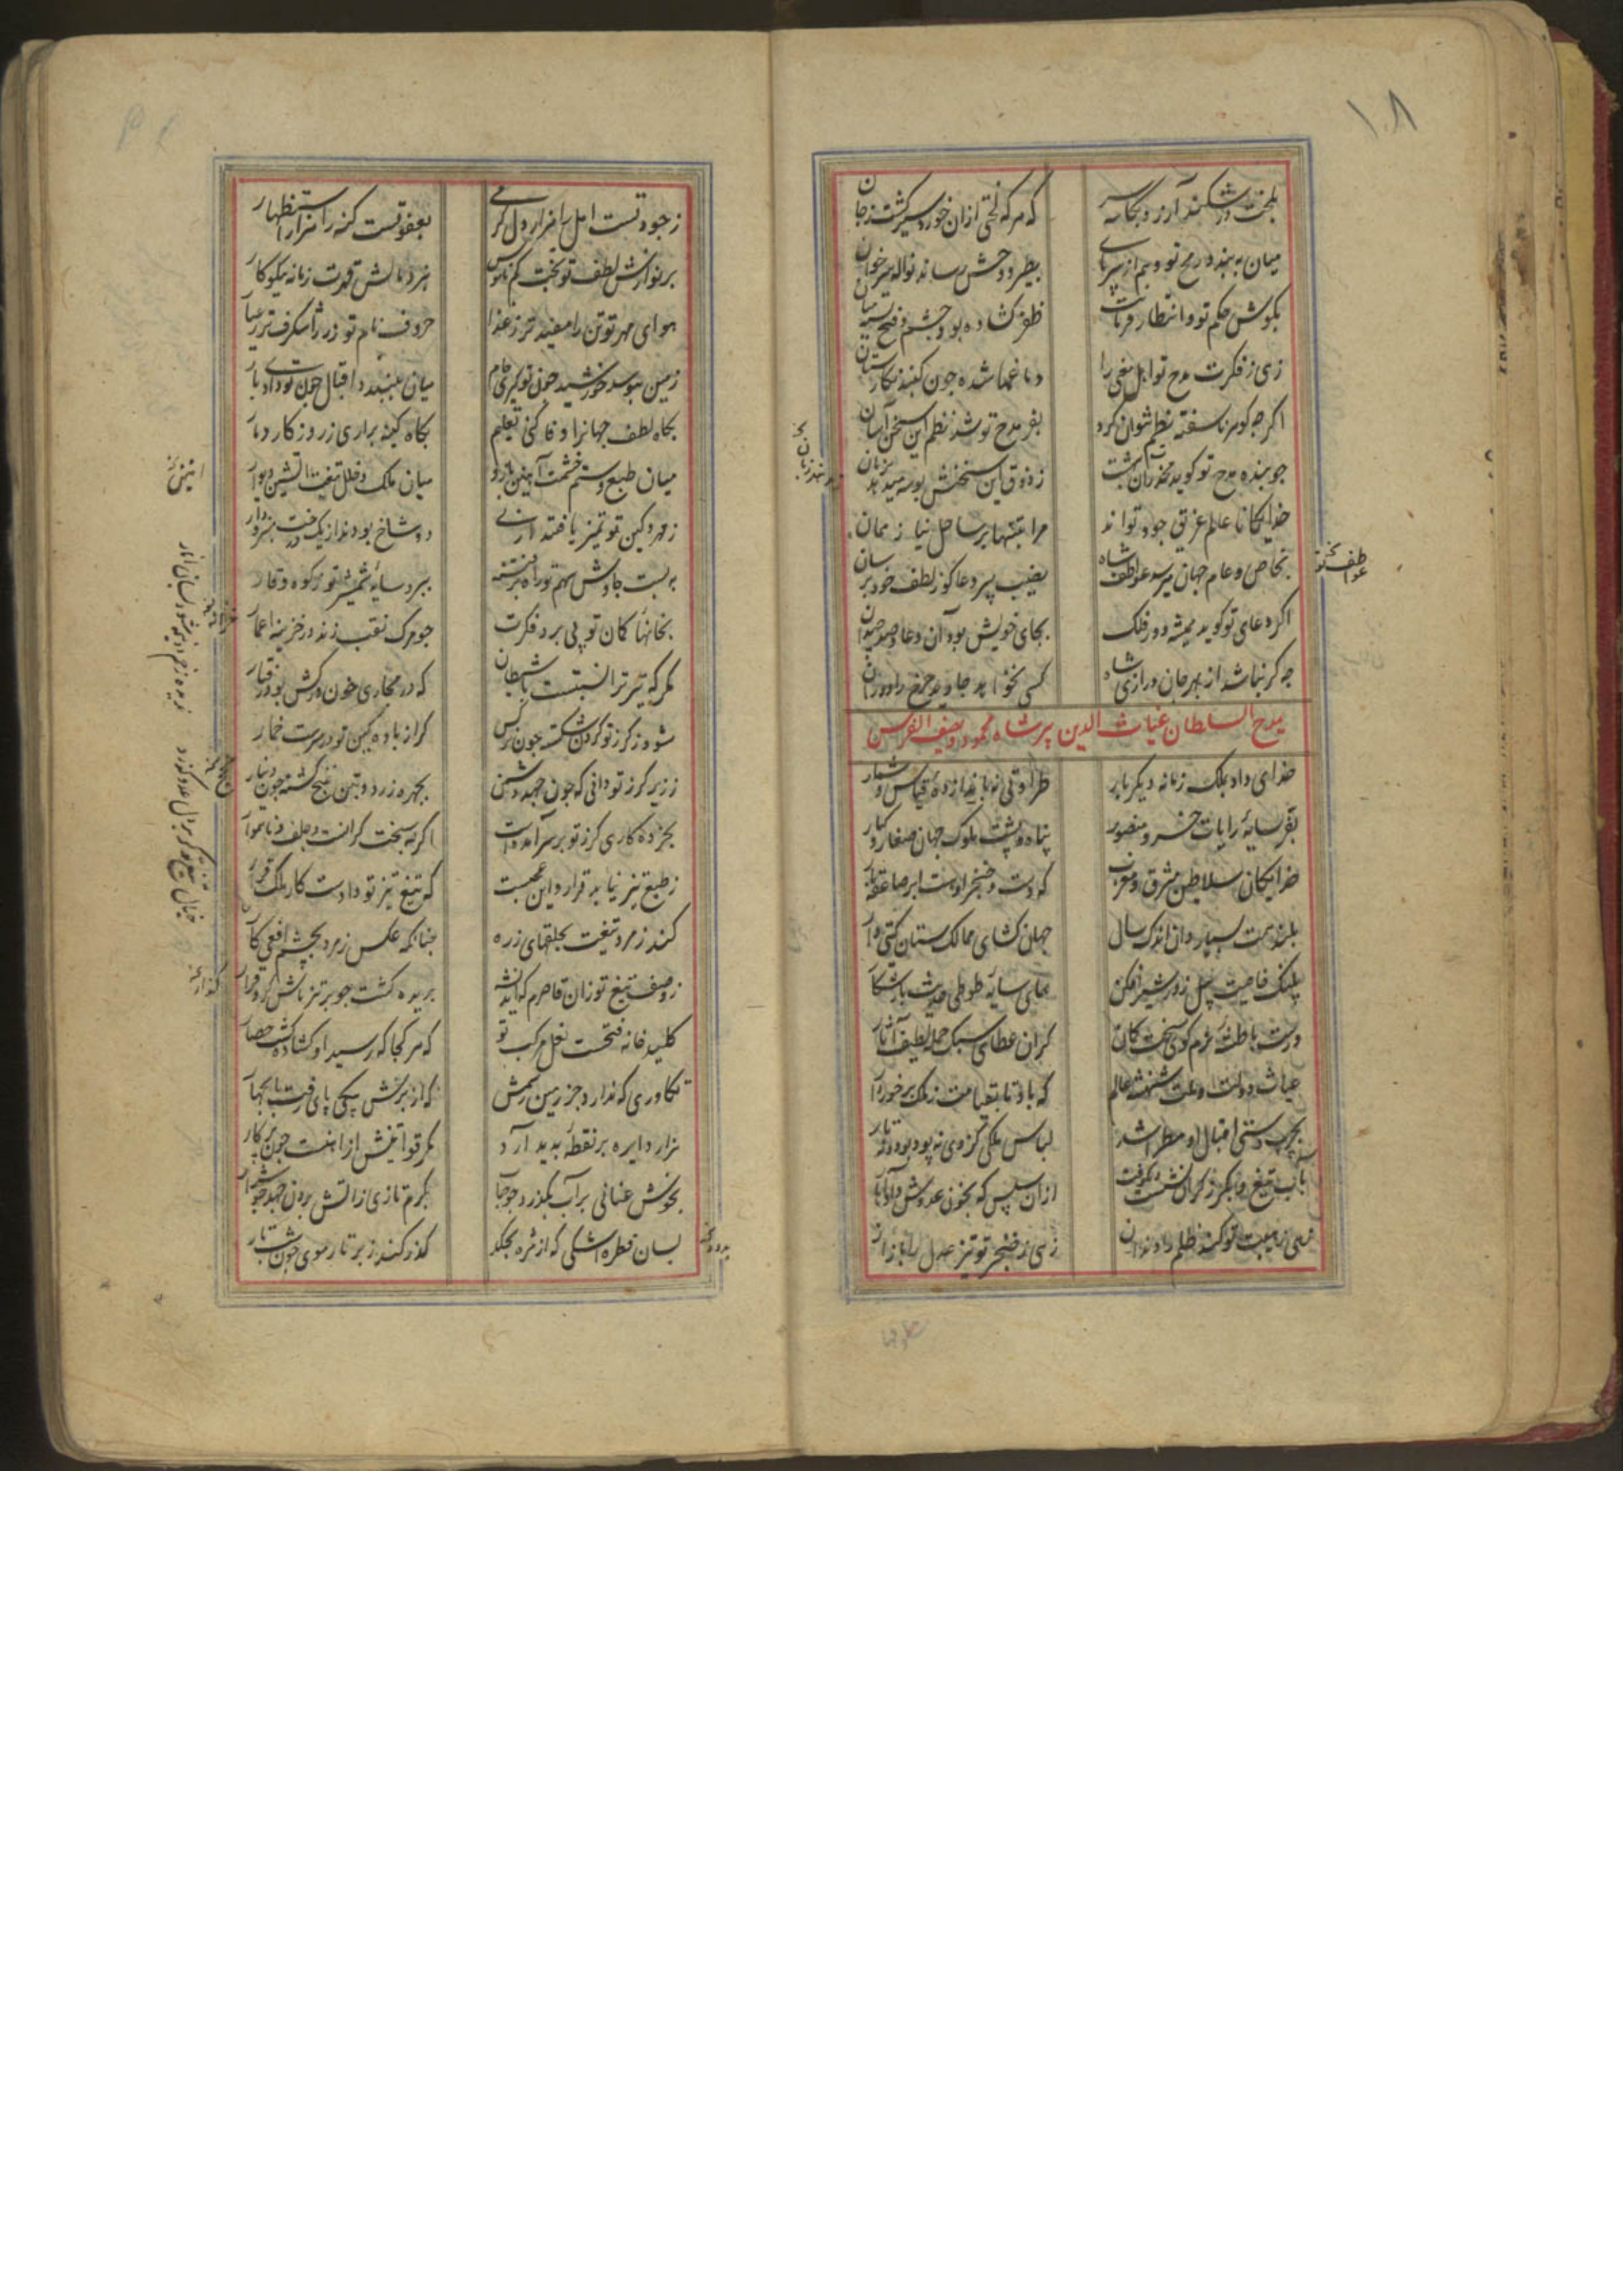 ۱۸
که هر که لختی ازان خورد سیر کشت ز جان
میان به بندد رمح تو وهم از سر پای
بطیر و وحش رساند نواله سر خوان
بکوش حکم تو و انتظار فرمانت
ظفر کشاده بود چشم و فتح بسته میان
زهی ز فکرت مدح تو اهل معنی را
دماغها شده چون کنبد نکارستان
اکرچه کوهر ناسفته نظم نتوان کرد
بفر مدح تو شد نظم این سخن آسان
چو بنده مدح تو کوید
ز ذوق این سخنش بوسه میدهد بزبان
خدایکانا عالم غریق جود تواند
مرا بتنها بر ساحل نیاز ممان
بخاص و عام جهان میرسد عواطف شاه
نصیب پیر دعا کوز لطف خود برسان
اکر دعای تو کوید همیشه دور فلک
بجای خویش بود آن دعا و صد چندان
چه کر نباشد از بهر جان درازی شاه
کسی نخواهد جاوید چرخ را دوران
مدح السلطان غیاث الدین پیر شاه محمود و یصف الفرس
خدای داد بملک زمانه دیکر بار
طراوتی نه باندازه قیاس و شمار
بفر سایه رایات خسرو منصور
پناه و پشت ملوک جهان صغار و کبار
خدایکان سلاطین مشرق و مغرب
که دست و خنجر اوست ابر صاعقه بار
بلند همت بسیار دان اندک سال
جهان کشای ممالک ستان کیتی دار
پلنک خاصیت پیل زور شیر افکن
همای سایه طوطی حدیث باز شکار
درست باطشه عزم کوی سخت کمان
کران عطای سبک حمله لطیف آثار
غیاث دولت و ملت شهنشه عالم
که باد تا بقیامت ز ملک برخوردار
بچرب دستی اقبال او مطرا شد
لباس ملکی کز وی نه پود بود و نه تار
بآب تیغ و بکرز کران نشست و کرفت
ازان سپس که بخون عدوش داد آهار
زهی ز هیبت تو کند ظلم را دندان
زهی ز خنجر تو تیز عدل را بازار
ز جود تست امل را هزار دل کرمی
بعفو تست کنه را هزار استظهار
بر نوازش لطف تو بخت کم ناموس
بنزد مالش قهرت زمانه نیکوکار
هوای مهر تو تن را مفید تر ز غذا
حروف نام تو زر را شکرف تر ز عیار
زمین ببوسد خورشید چون تو کیری جام
میان ببندد اقبال چون تو دادی بار
بکاه لطف جهانرا وفا کنی تعلیم
بکاه کینه براری ز روزکار دمار
میان طبع و ستم خشمت آهنین بارو
میان ملک و خلل تیغت آتشین دیوار
ز مهر و کین تو تمییز یافتند ارنی
دو شاخ بودند از یک درخت منبر و دار
به بست چاوش سهم تو راه بر فتنه
ببرد سایه شمشیر تو ز کوه وقار
بخانها کمان تو پی برد فکرت
چو مرک نقب زند در خزینه اعمار
مکر که تیر ترا نسبتست با شیطان
که در مجاری خون هر کش بود رفتار
شود ز کرز تو کردن شکسته چون نرکس
کر از باده کین تو در سرست خمار
ز زیر کرز تو دانی که چون جهد دشمن
بچهره زرد و بتن پنج کشته چون دینار
بخرده کاری کرز تو بر سر آمدست
اکر نه سخت کرانست و جلف و ناهموار
ز طبع تیز نیاید قرار و این عجبست
که تیغ تیز تو دادست کار ملک قرار
کند زمرد تیغت بحلقهای زره
چنانکه عکس زمرد بچشم افعی کار
ز وصف تیغ تو زان قاصرم که اندیشه
بریده کشت چو بر تیزناش کرد قرار
کلید خانه فتحست نعل مرکب تو
که هر کجا که رسید او کشاده کشت حصار
تکاوری که ندارد جز زمین سمش
که از برش بیکی پای رفت تا بچهار
هزار دایره بر نقطه پدید آرد
مکر قوائمش از آهنست چون پرکار
بخوش عنانی بر آب بکذرد چو حباب
بکرم تازی ز آتش برون جهد چو شرار
بسان قطره اشکی که از مژه بچکد
کذر کند ز بر تار موی چون شب تار